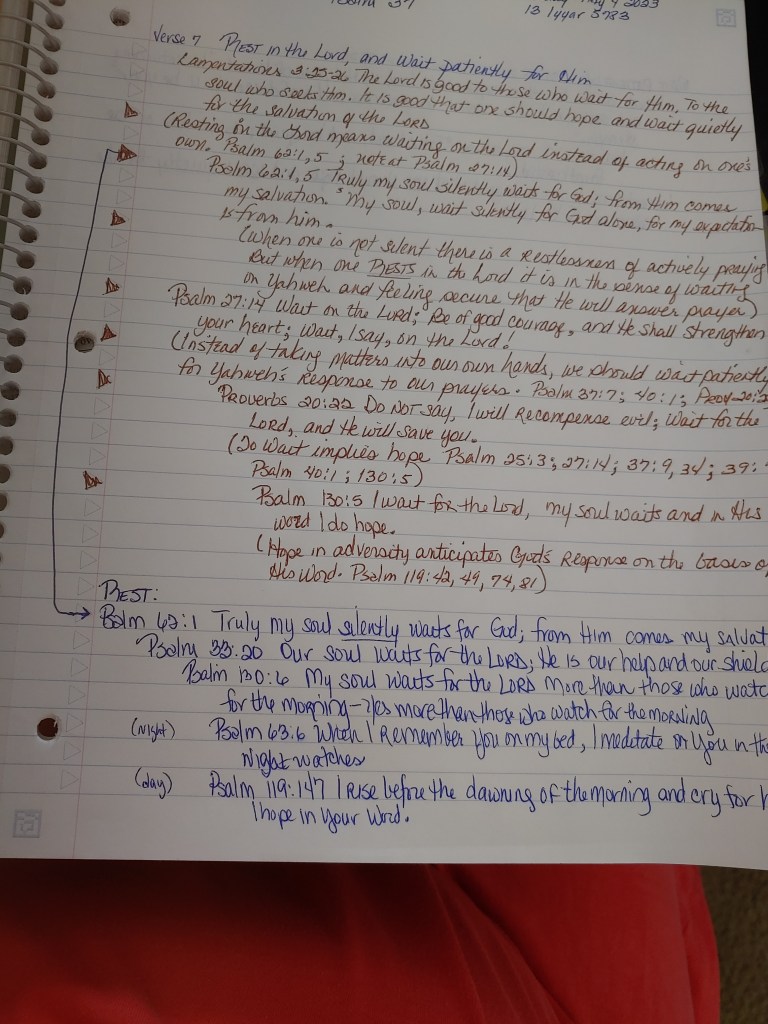 Psalm 37
May 4 2023
13 Iyyar 5783
Verse 7 REST in the Lord, and wait patiently for Him
Lamentations 3:25-26 The Lord is good to those who wait for Him, To the
soul who seeks Him. It is good that one should hope and wait quietly
for the salvation of the LORD
(Resting in the Lord means waiting on the Lord instead of acting on one's
own. Psalm 62:1,5 ; note at Psalm 27:14)
Psalm 62:1,5 Truly my soul silently waits for God; from Him comes
my salvation. 5 My soul, wait silently for God alone, for my expectation
is from him.
(when one is not silent there is a restlessness of actively praying
But when one RESTS in the Lord it is in the sense of waiting
on Yahweh and feeling secure that He will answer prayer)
Psalm 27:14 Wait on the LORD; Be of good courage, and He shall strengthen
your heart; Wait, I say, on the Lord!
(Instead of taking matters into our own hands, we should wait patiently
for Yahweh's Response to our prayers. Psalm 37:7; 40:1; Prov 20:2
Proverbs 20:22 Do NOT say, I will Recompense evil; Wait for the
LORD, and He will save you.
(To Wait implies hope Psalm 25:3; 27:14; 37:9, 34; 39:
Psalm 40:1; 130:5)
Psalm 130:5 I wait for the Lord, my soul waits and in His
word I do hope.
(Hope in adversity anticipates God's Response on the basis of
His Word. Psalm 119:42, 49, 74, 81)
REST:
Psalm 62:1 Truly my soul silently waits for God; from Him comes my salvat
Psalm 33:20 Our soul waits for the LORD; He is our help and our shield
Psalm 130:6 My soul waits for the LORD More than those who watc
for the morning - Yes more than those who watch for the morning
(night) Psalm 63:6 When I Remember You on my bed, I meditate on You in the
night watches
(day) Psalm 119:147 I rise before the dawning of the morning and cry for h
I hope in Your Word.